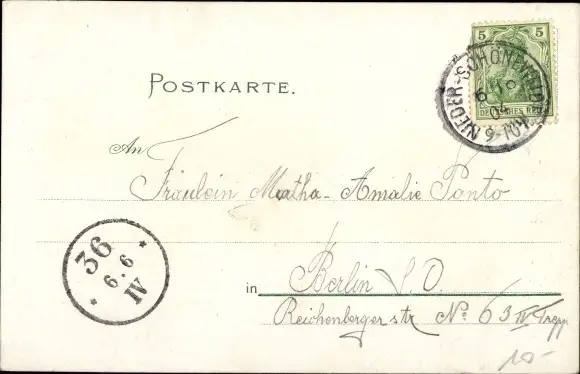 5 5
DEUTSCHES REICH
NIEDER-SCHÖNEWEIDE
6
04
POSTKARTE.
An
Fräulein Martha-Amalie Panto
36
6.6
IV
in Berlin S.O.
Reichenberger str No. 63 IV Trepp
10-